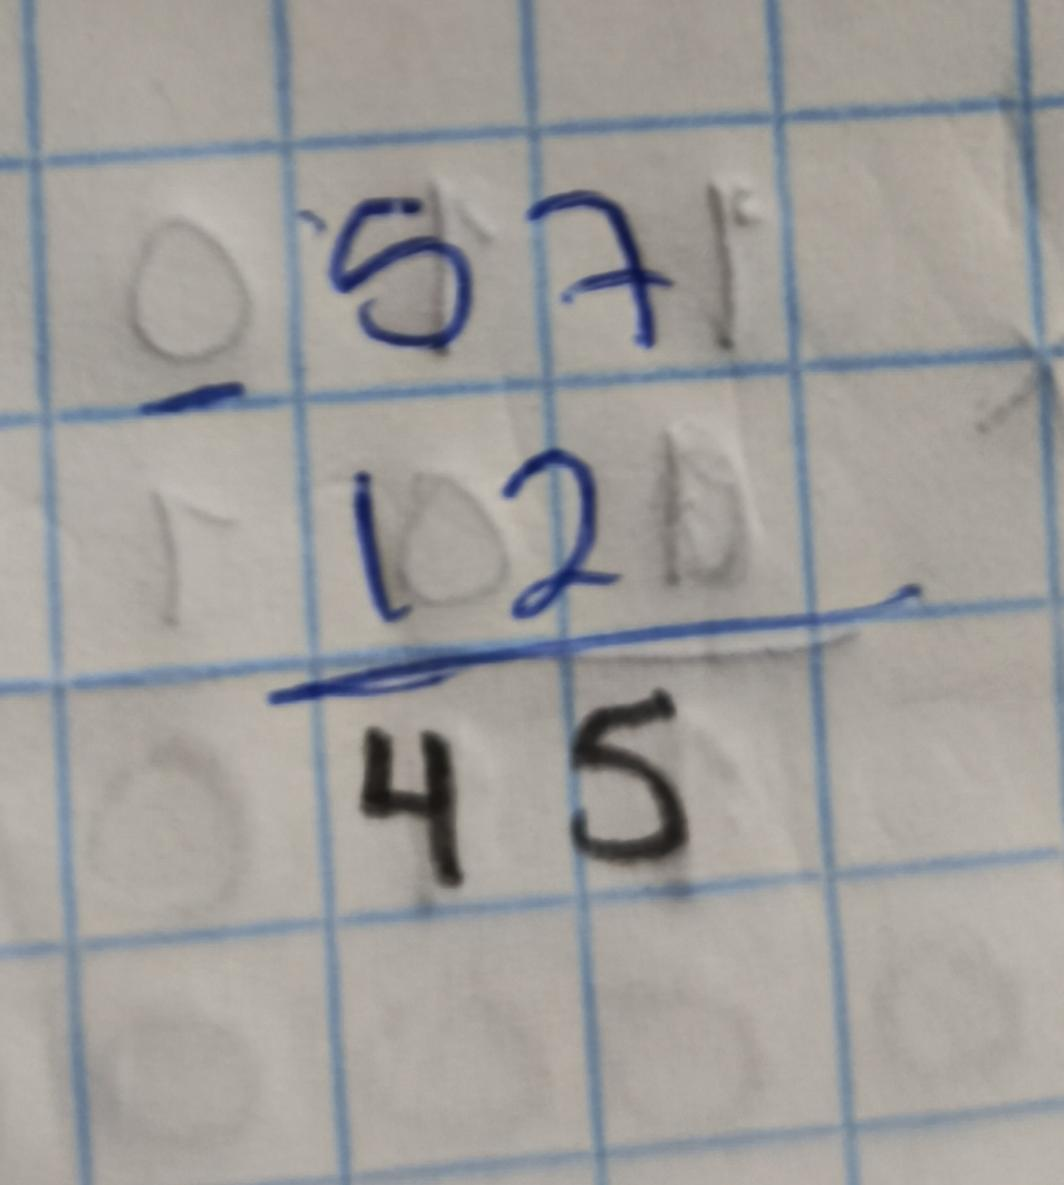 57
-
12
45